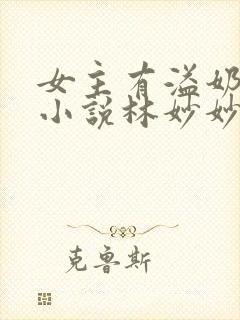 女主有溢奶
小説林妙妙
克鲁斯